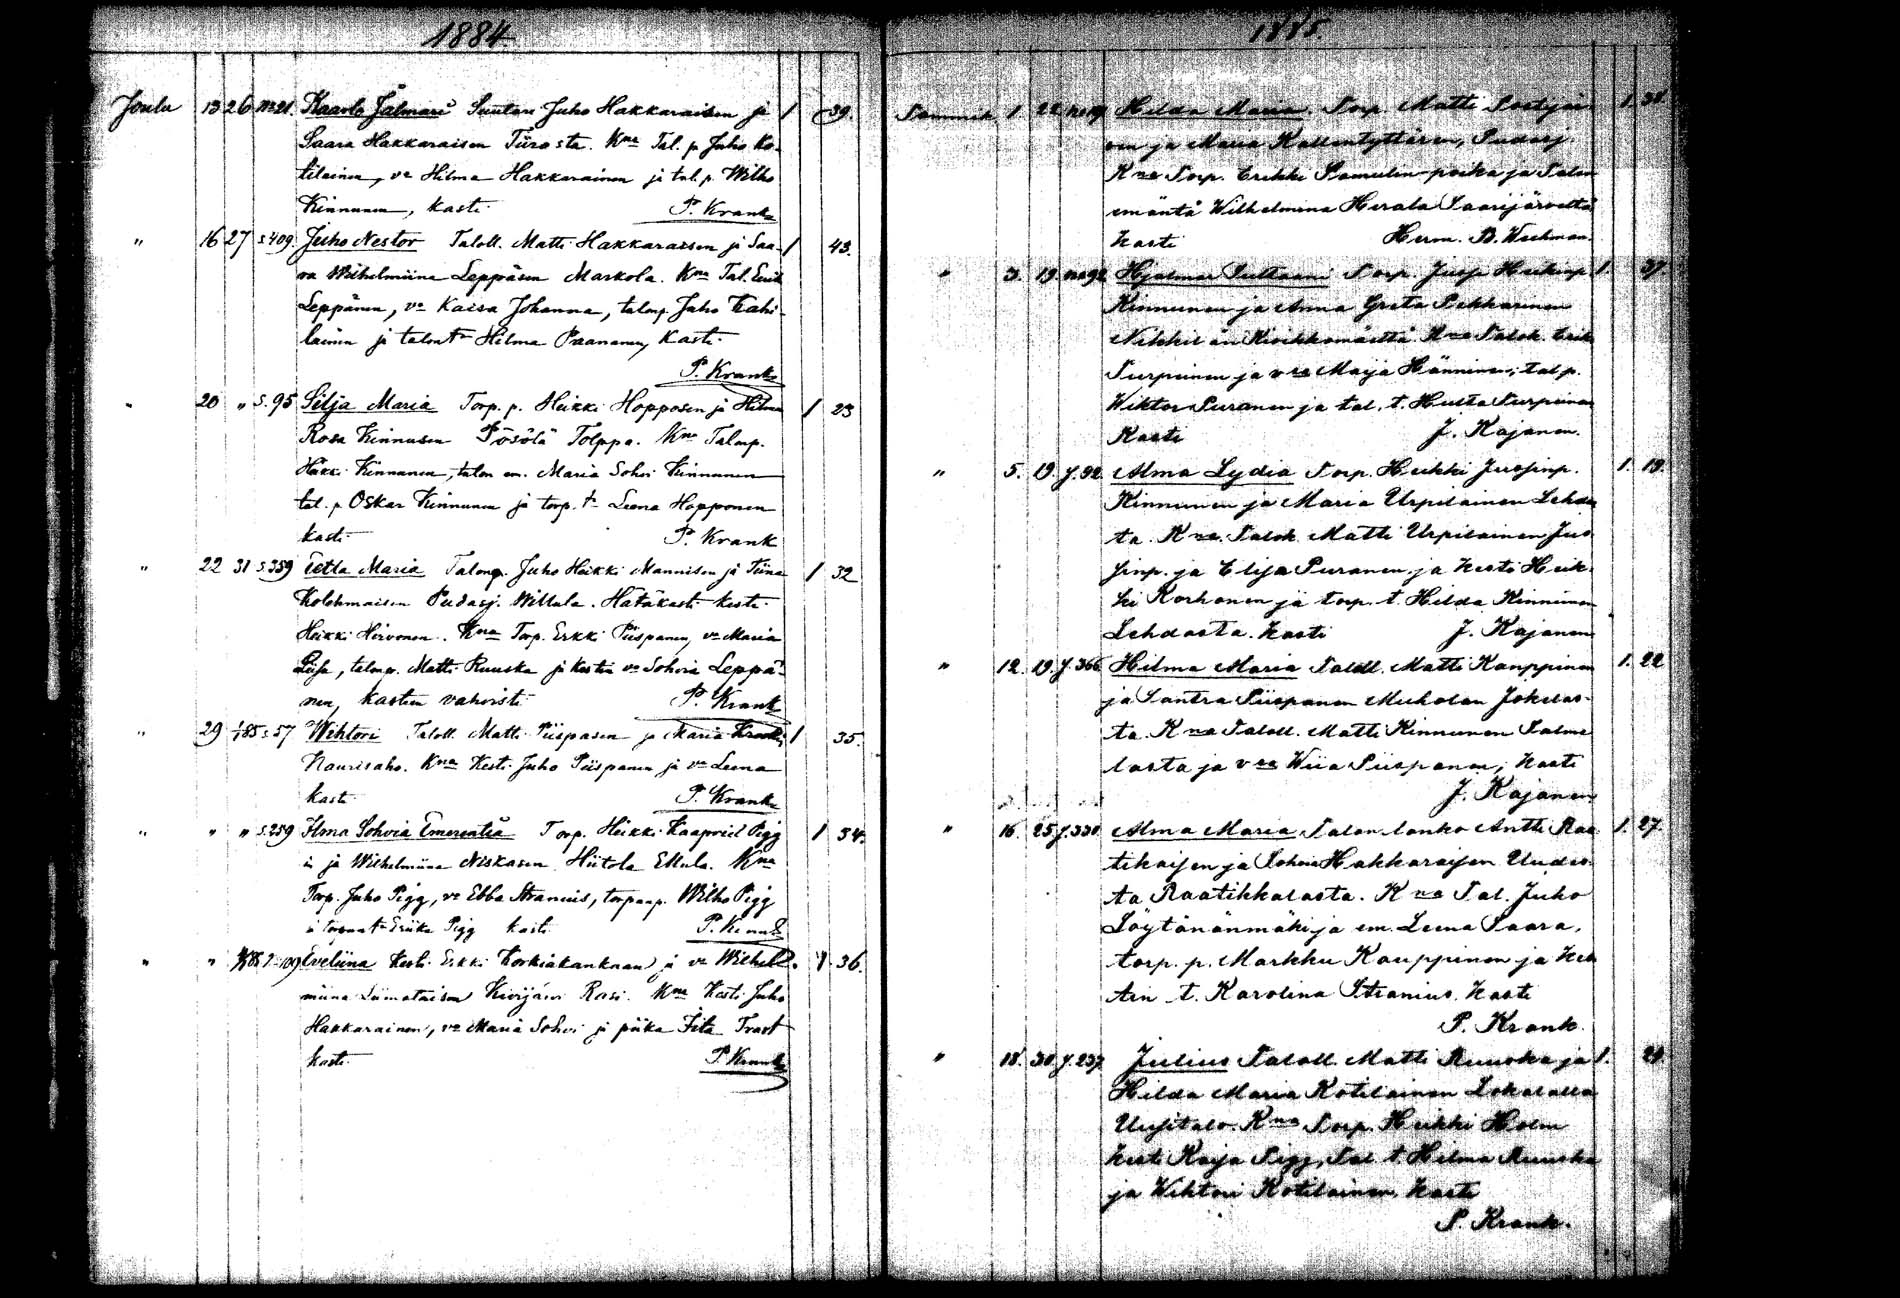 1884.
Joulu 13 26 no 21. Kaarlo Jalmari Suutari Juho Hakkaraisen ja 1 39.
Saara Hakkaraisen Tiirosta. Kna Tal. p. Juho Ko-
tilainen, va Hilma Hakkarainen ja tal. p. Wilho
Kinnunen, kasti P. Krank
" 16 27 s. 409. Juho Nestor Taloll. Matti Hakkaraisen ja Saa- 1 43.
ra Wilhelmiina Leppäsen Markola. Kna Tal. Erik
Leppänen, va Kaisa Johanna, talonp. Juho
lainen ja talont. Hilma Paananen, kasti
P. Krank
" 20 " s. 95 Silja Maria Torp. p. Heikki Hopposen ja Hilma 1 23
Rosa Kinnusen Pösölä Tolppa. Kna Talonp.
Heikki Kinnunen, talon em. Maria Sohvi Kinnunen
tal. p. Oskar Kinnunen ja torp. t. Leena Hopponen
kasti P. Krank
" 22 31 s. 359 Eetla Maria Talonp. Juho Heikki Mannisen ja Tiina 1 32
Kolehmaisen Pudasj. Willala. Hätäkasti kesti
Heikki Hirvonen. Kna Torp. Erkki Piispanen, va Maria
Liisa, talonp. Matti Ruuska ja kestin va Sohvia Leppä-
nen, kasteen vahvisti P. Krank
" 29 1/1 85 s. 57 Wihtori Taloll. Matti Piispasen ja Maria 1 35.
Naurisaho. Kna Kesti Juho Piispanen ja va Leena
kasti P. Krank
" " " s. 259 Ilma Sohvia Emerentia Torp. Heikki Kaapriel Pigg 1 34.
in ja Wilhelmiina Niskasen Hiitola Ellula. Kna
Torp. Juho Pigg, va Ebba Stranius, torpanp. Wilho Pigg
ja torpant. Eriika Pigg kasti P. Krank
" " 85 109 Eveliina Kesti Erkki Korkiakankaan ja va Wilhel- 1 36.
miina Liimataisen Kivijärvi Rasi. Kna Kesti Juho
Hakkarainen, va Maria Sohvi ja piika Fita Trast
kasti P. Krank
1885.
Tammik. 1 22 no 19 Hilda Maria. Torp. Matti
sen ja Maria Kallentyttären, Pudasj.
Kna Torp. Erikki Samulinpoika ja Talon
emäntä Wilhelmina Herala Saarijärveltä
kasti Herm. B. Wechman.
" 3. 19. no 92 Hjalmar Torp. Jusji Heikinp. 1. 37.
Kinnunen ja Anna Greta Pekkarinen
Kna Talok. Erik
Turpeinen ja vra Maija Hänninen; tal p.
Wiktor Puranen ja tal. t. Hulta Turpeinen
Kasti J. Kajanen.
" 5. 19. J. 92. Alma Lydia Torp. Heikki Jusjinp. 1. 19.
Kinnunen ja Maria Urpilainen Lehdos
ta. Kna. Talok. Matti Urpilainen Jus-
jinp. ja Elija Puranen, ja Kesti Heik-
ki Korhonen ja torp. t. Hilda Kinnunen
Lehdosta. Kasti J. Kajanen
" 12. 19. J. 366. Hilma Maria Taloll. Matti Kauppinen 1. 22
ja Santra Piispanen Muholan Jokelas-
ta. Kna Taloll. Matti Kinnunen Salme
lasta ja vra Wiia Piispanen; Kasti
J. Kajanen.
" 16. 25 J. 330. Alma Maria Talon lanko Antti Raa- 1. 27.
tikaijen ja Sohvia Hakkaraijen Uudes-
ta Raatikkalasta. Kna Tal. Juho
Löytänänmäki ja em. Leena Saara,
torp. p. Markku Kauppinen ja Kes
tin t. Karolina Stranius. Kasti
P. Krank.
" 18. 30. J. 237. Julius Taloll. Matti Ruuska ja 1. 29.
Hilda Maria Kotilainen Lokalalla
Uusitalo. Kna Torp. Heikki Holm
kest. Kaija Pigg, Tal. t. Hilma Ruuska
ja Wihtori Kotilainen. Kasti
P. Krank.